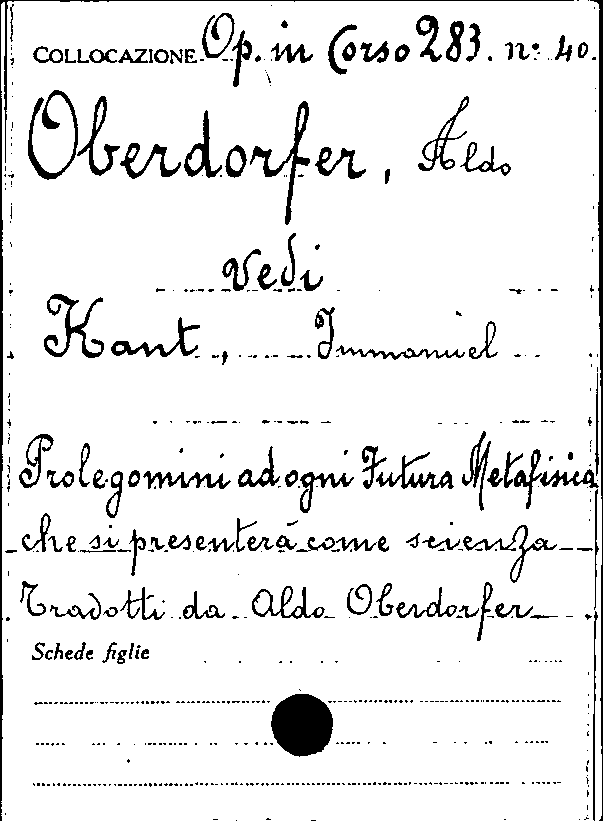 COLLOCAZIONE Op. in Corso 283. n: 40.
Oberdorfer, Aldo
vedi
Kant, Immanuel
Prolegomini ad ogni Futura Metafisica
che si presenterà come scienza
Tradotti da Aldo Oberdorfer
Schede figlie